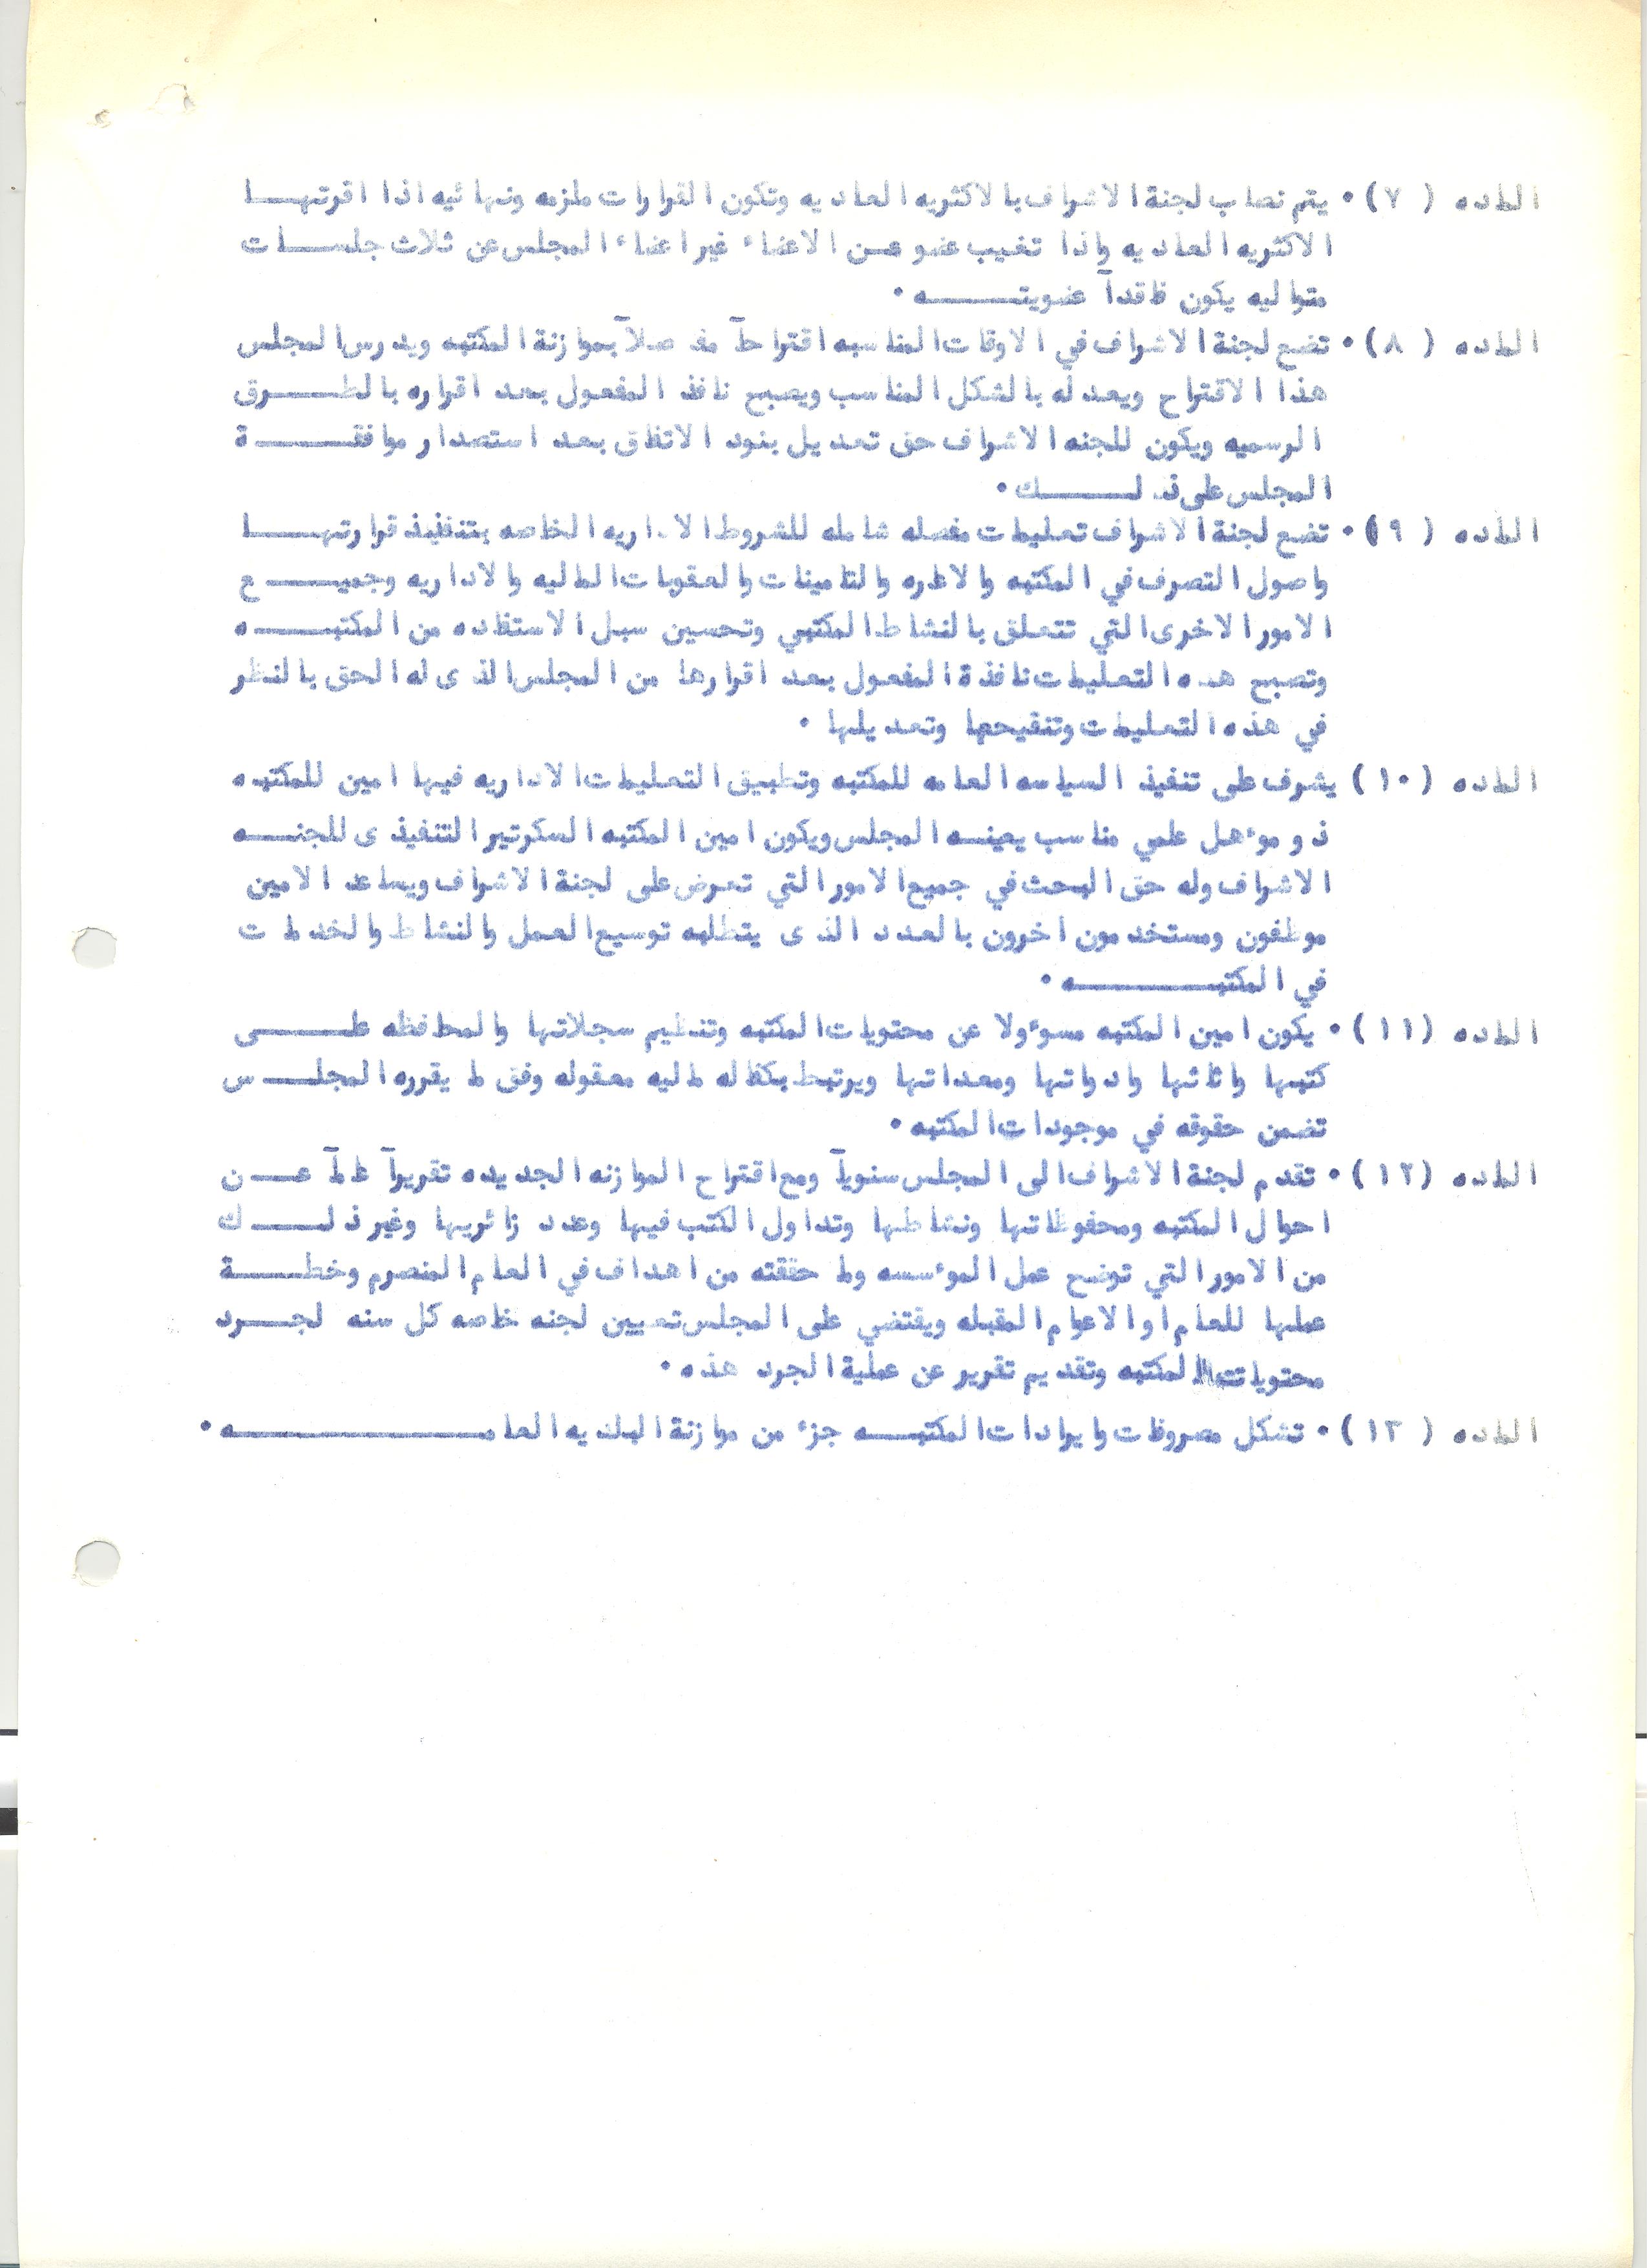 الماده ( ٧ ) ٠ يتم نصاب لجنة الاشراف بالاكثريه العاديه وتكون القرارات ملزمه ونهائيه اذا اقرتهـــا
الاكثريه العاديه واذا تغيب عضو مـن الاعضاء غير اعضاء المجلس عن ثلاث جلســات
متواليه يكون فاقداً عضويتـــــه ٠
الماده ( ٨ ) ٠ تضع لجنة الاشراف في الاوقات المناسبه اقتراحاً مفصلاً بموازنة المكتبه ويدرس المجلس
هذا الاقتراح ويعدله بالشكل المناسب ويصبح نافذ المفعول بعد اقراره بالطـــرق
الرسميه ويكون للجنه الاشراف حق تعديل بنود الاتفاق بعد استصدار موافقـــــة
المجلس على ذلـــــك ٠
الماده ( ٩ ) ٠ تضع لجنة الاشراف تعليمات مفصله شامله للشروط الاداريه الخاصه بتنفيذ قرارتهـــا
واصول التصرف في المكتبه والاعاره والتامينات والعقوبات الماليه والاداريه وجميـــع
الامور الاخرى التي تتعلق بالنشاط المكتبي وتحسين سبل الاستفاده من المكتبـــه
وتصبح هذه التعليمات نافذة المفعول بعد اقرارها من المجلس الذى له الحق بالنظر
في هذه التعليمات وتنقيحها وتعديلها ٠
الماده ( ١٠ ) يشرف على تنفيذ السياسه العامه للمكتبه وتطبيق التعليمات الاداريه فيها امين للمكتبه
ذو موءهل علمي مناسب يعينــه المجلس ويكون امين المكتبه السكرتير التنفيذى للجنـــه
الاشراف وله حق البحث في جميع الامور التي تعرض على لجنة الاشراف ويساعد الامين
موظفون ومستخدمون اخرون بالعدد الذى يتطلبه توسيع العمل والنشاط والخدمات
في المكتبـــــــــه ٠
الماده ( ١١ ) ٠ يكون امين المكتبه مسوءولا عن محتويات المكتبه وتنظيم سجلاتها والمحافظه علـــى
كتبها واثاثها وادواتها ومعداتها ويرتبط بكفاله ماليه معقوله وفق ما يقرره المجلــس
تضمن حقوقه في موجودات المكتبه ٠
الماده ( ١٢ ) ٠ تقدم لجنة الاشراف الى المجلس سنوياً ومع اقتراح الموازنه الجديده تقريراً عاماً عـــن
احوال المكتبه ومحفوظاتها ونشاطها وتداول الكتب فيها وعدد زائريها وغير ذلـــك
من الامور التي توضح عمل الموءسسه وما حققته من اهداف في العام المنصرم وخطـــة
عملها للعام او الاعوام المقبله ويقتضي على المجلس تعيين لجنه خاصه كل سنه لجـــرد
محتويات المكتبه وتقديم تقرير عن عملية الجرد هذه ٠
الماده ( ١٣ ) ٠ تشكل مصروفات وايرادات المكتبــه جزء من موازنة البلديه العامـــــــــــه ٠